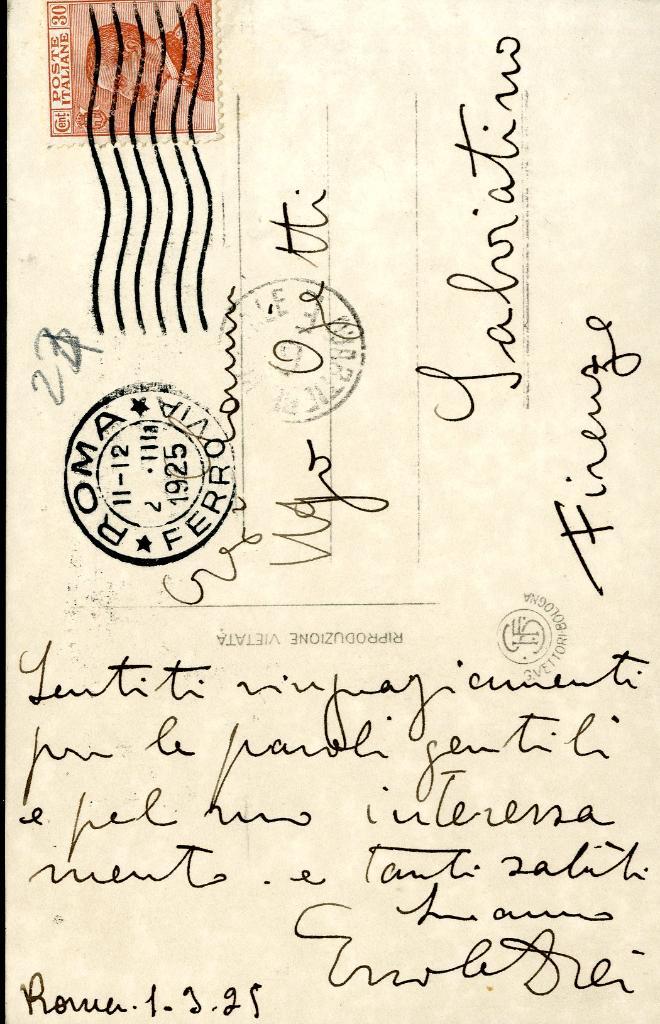 Sentiti ringraziamenti
per le parole gentili
e pel suo interessa
mento. e tanti saluti
Suo amico
Ercole Drei
Roma. 1-3-25
Ugo Ojetti
Salviatino
Firenze
POSTE ITALIANE
Cent 30
ROMA FERROVIA
11-12
2 · III
1925
RIPRODUZIONE VIETATA
G. VETTORI · BOLOGNA